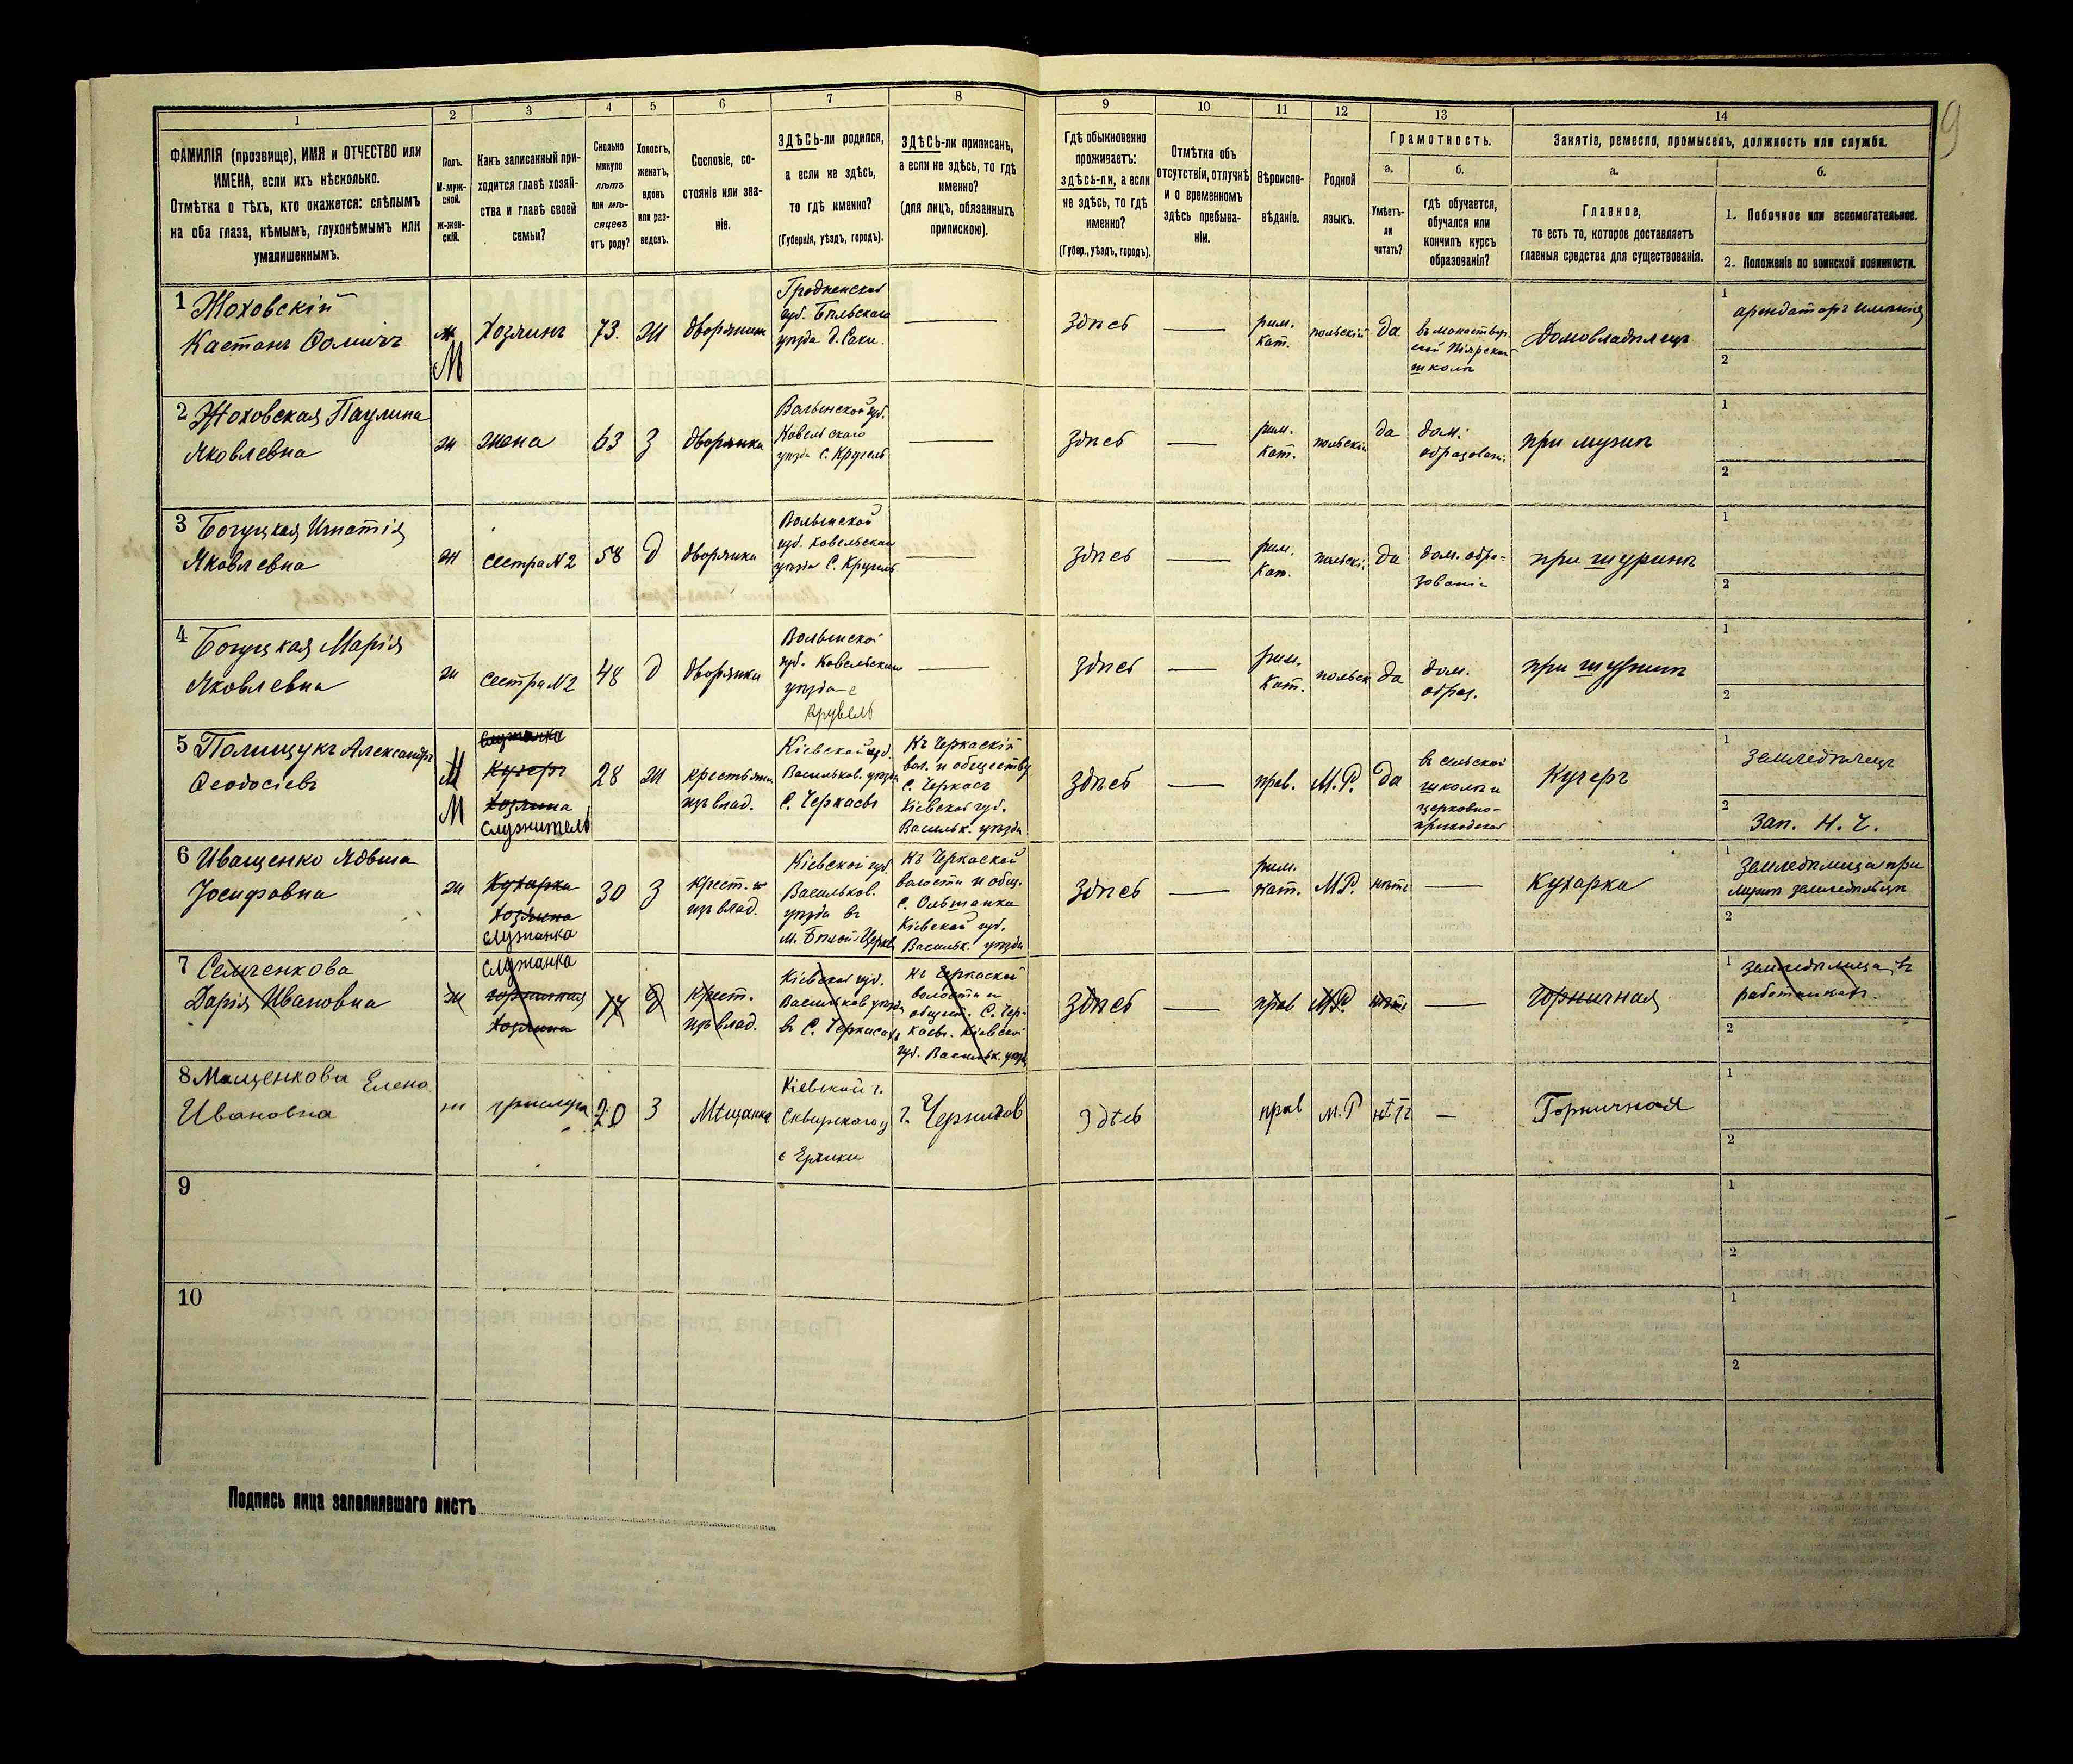 1
2
3
4
5
6
7
8
9
10
11
12
13
14
9
ФАМИЛІЯ (прозвище), ИМЯ и ОТЧЕСТВО или
ИМЕНА, если ихъ нѣсколько.
Отмѣтка о тѣхъ, кто окажется: слѣпымъ
на оба глаза, нѣмымъ, глухонѣмымъ или
умалишеннымъ.
Полъ.
М-муж-
ской.
ж-жен-
скій.
Какъ записанный при-
ходится главѣ хозяй-
ства и главѣ своей
семьи?
Сколько
минуло
лѣтъ
или мѣ-
сяцевъ
отъ роду?
Холостъ,
женатъ,
вдовъ
или раз-
веденъ.
Сословіе, со-
стояніе или зва-
ніе.
ЗДѢСЬ-ли родился,
а если не здѣсь,
то гдѣ именно?
(Губернія, уѣздъ, городъ).
ЗДѢСЬ-ли приписанъ,
а если не здѣсь, то гдѣ
именно?
(для лицъ, обязанныхъ
припискою).
Гдѣ обыкновенно
проживаетъ:
здѣсь-ли, а если
не здѣсь, то гдѣ
именно?
(Губер., уѣздъ, городъ).
Отмѣтка объ
отсутствіи, отлучкѣ
и о временномъ
здѣсь пребыва-
ніи.
Вѣроиспо-
вѣданіе.
Родной
языкъ.
Грамотность.
а.
Умѣетъ-
ли
читать?
б.
гдѣ обучается,
обучался или
кончилъ курсъ
образованія?
Занятіе, ремесло, промыселъ, должность или служба.
а.
Главное,
то есть то, которое доставляетъ
главныя средства для существованія.
б.
1. Побочное или вспомогательное.
2. Положеніе по воинской повинности.
1 Жоховскій
Каетанъ Ѳомичъ
М
Хозяинъ
73.
ж
дворянин
Гродненской
губ. Бѣльскаго
уѣзда д. Саки.
здѣсь
рим.
Кат.
польскій
да
въ монастыр.
ской Піярской
школѣ
Домовладѣлецъ
1
арендаторъ имѣнія
2
2 Жоховская Паулина
Яковлевна
ж
жена
63
З
дворянка
Волынской губ.
Ковельскаго
уѣзда с. Кругель
здѣсь
рим.
Кат.
польскій
да
дом.
образован.
при мужѣ
1
2
3 Богуцкая Игнатія
Яковлевна
ж
сестра N2
58
д
дворянка
Волынской
губ. Ковельскаго
уѣзда С. Кругель
здѣсь
рим.
Кат.
польскі.
да
дом. обра-
зованіе
при шуринѣ
1
2
4 Богуцкая Марія
Яковлевна
ж
сестра N2
48
д
дворянка
Волынской
губ. Ковельскаго
уѣзда с
здѣсь
рим.
Кат.
польск
да
дом.
образ.
при шуринѣ
1
2
5 Полищукъ Александръ
Ѳеодосіевъ
М
М
служанка
Кучеръ
Хозяина
служитель
28
ж
крестьянин
изъ влад.
Кіевской губ.
Васильков. уѣзда
С. Черкасъ
Къ Черкаскій
вол. и обществу
С. Черкасъ
Кіевской губ.
Васильк. уѣзда
здѣсь
прав.
М.Р.
да
въ сельской
школѣ и
церковно-
приходской
Кучеръ
1
земледѣлецъ
2
зап. Н. Ч.
6 Иващенко Ядвига
Іосифовна
ж
Кухарка
Хозяина
служанка
30
З
крест.
изъ влад.
Кіевской губ.
Васильков.
уѣзда въ
м. Бѣлой Церкви
Къ Черкаской
волости и общ.
с. Ольшанка
Кіевской губ.
Васильк. уѣзда
здѣсь
рим.
кат.
М.Р.
нѣтъ
Кухарка
1
земледѣлица при
мужѣ земледѣльцѣ
2
7 Семченкова
Дарія Ивановна
ж
служанка
горничная
Хозяина
17
д
крест.
изъ влад.
Кіевской губ.
Васильков уѣзда
въ С. Черкасахъ
Къ Черкаской
волости и
общест. С. Чер-
касъ. Кіевской
губ. Васильк. уѣзда
здѣсь
прав
М.Р.
нѣтъ
Горничная
1
земледѣлица въ
работникахъ.
2
8 Мащенкова Елена
Ивановна
ж
прислуга
20
З
Мѣщанка
Кіевской г.
Сквирского у
с Ерчики
г. Чернигов
Здѣсь
прав
М.Р
нѣтъ
Горничная
1
2
9
1
2
10
1
2
Подпись лица заполнявшаго листъ